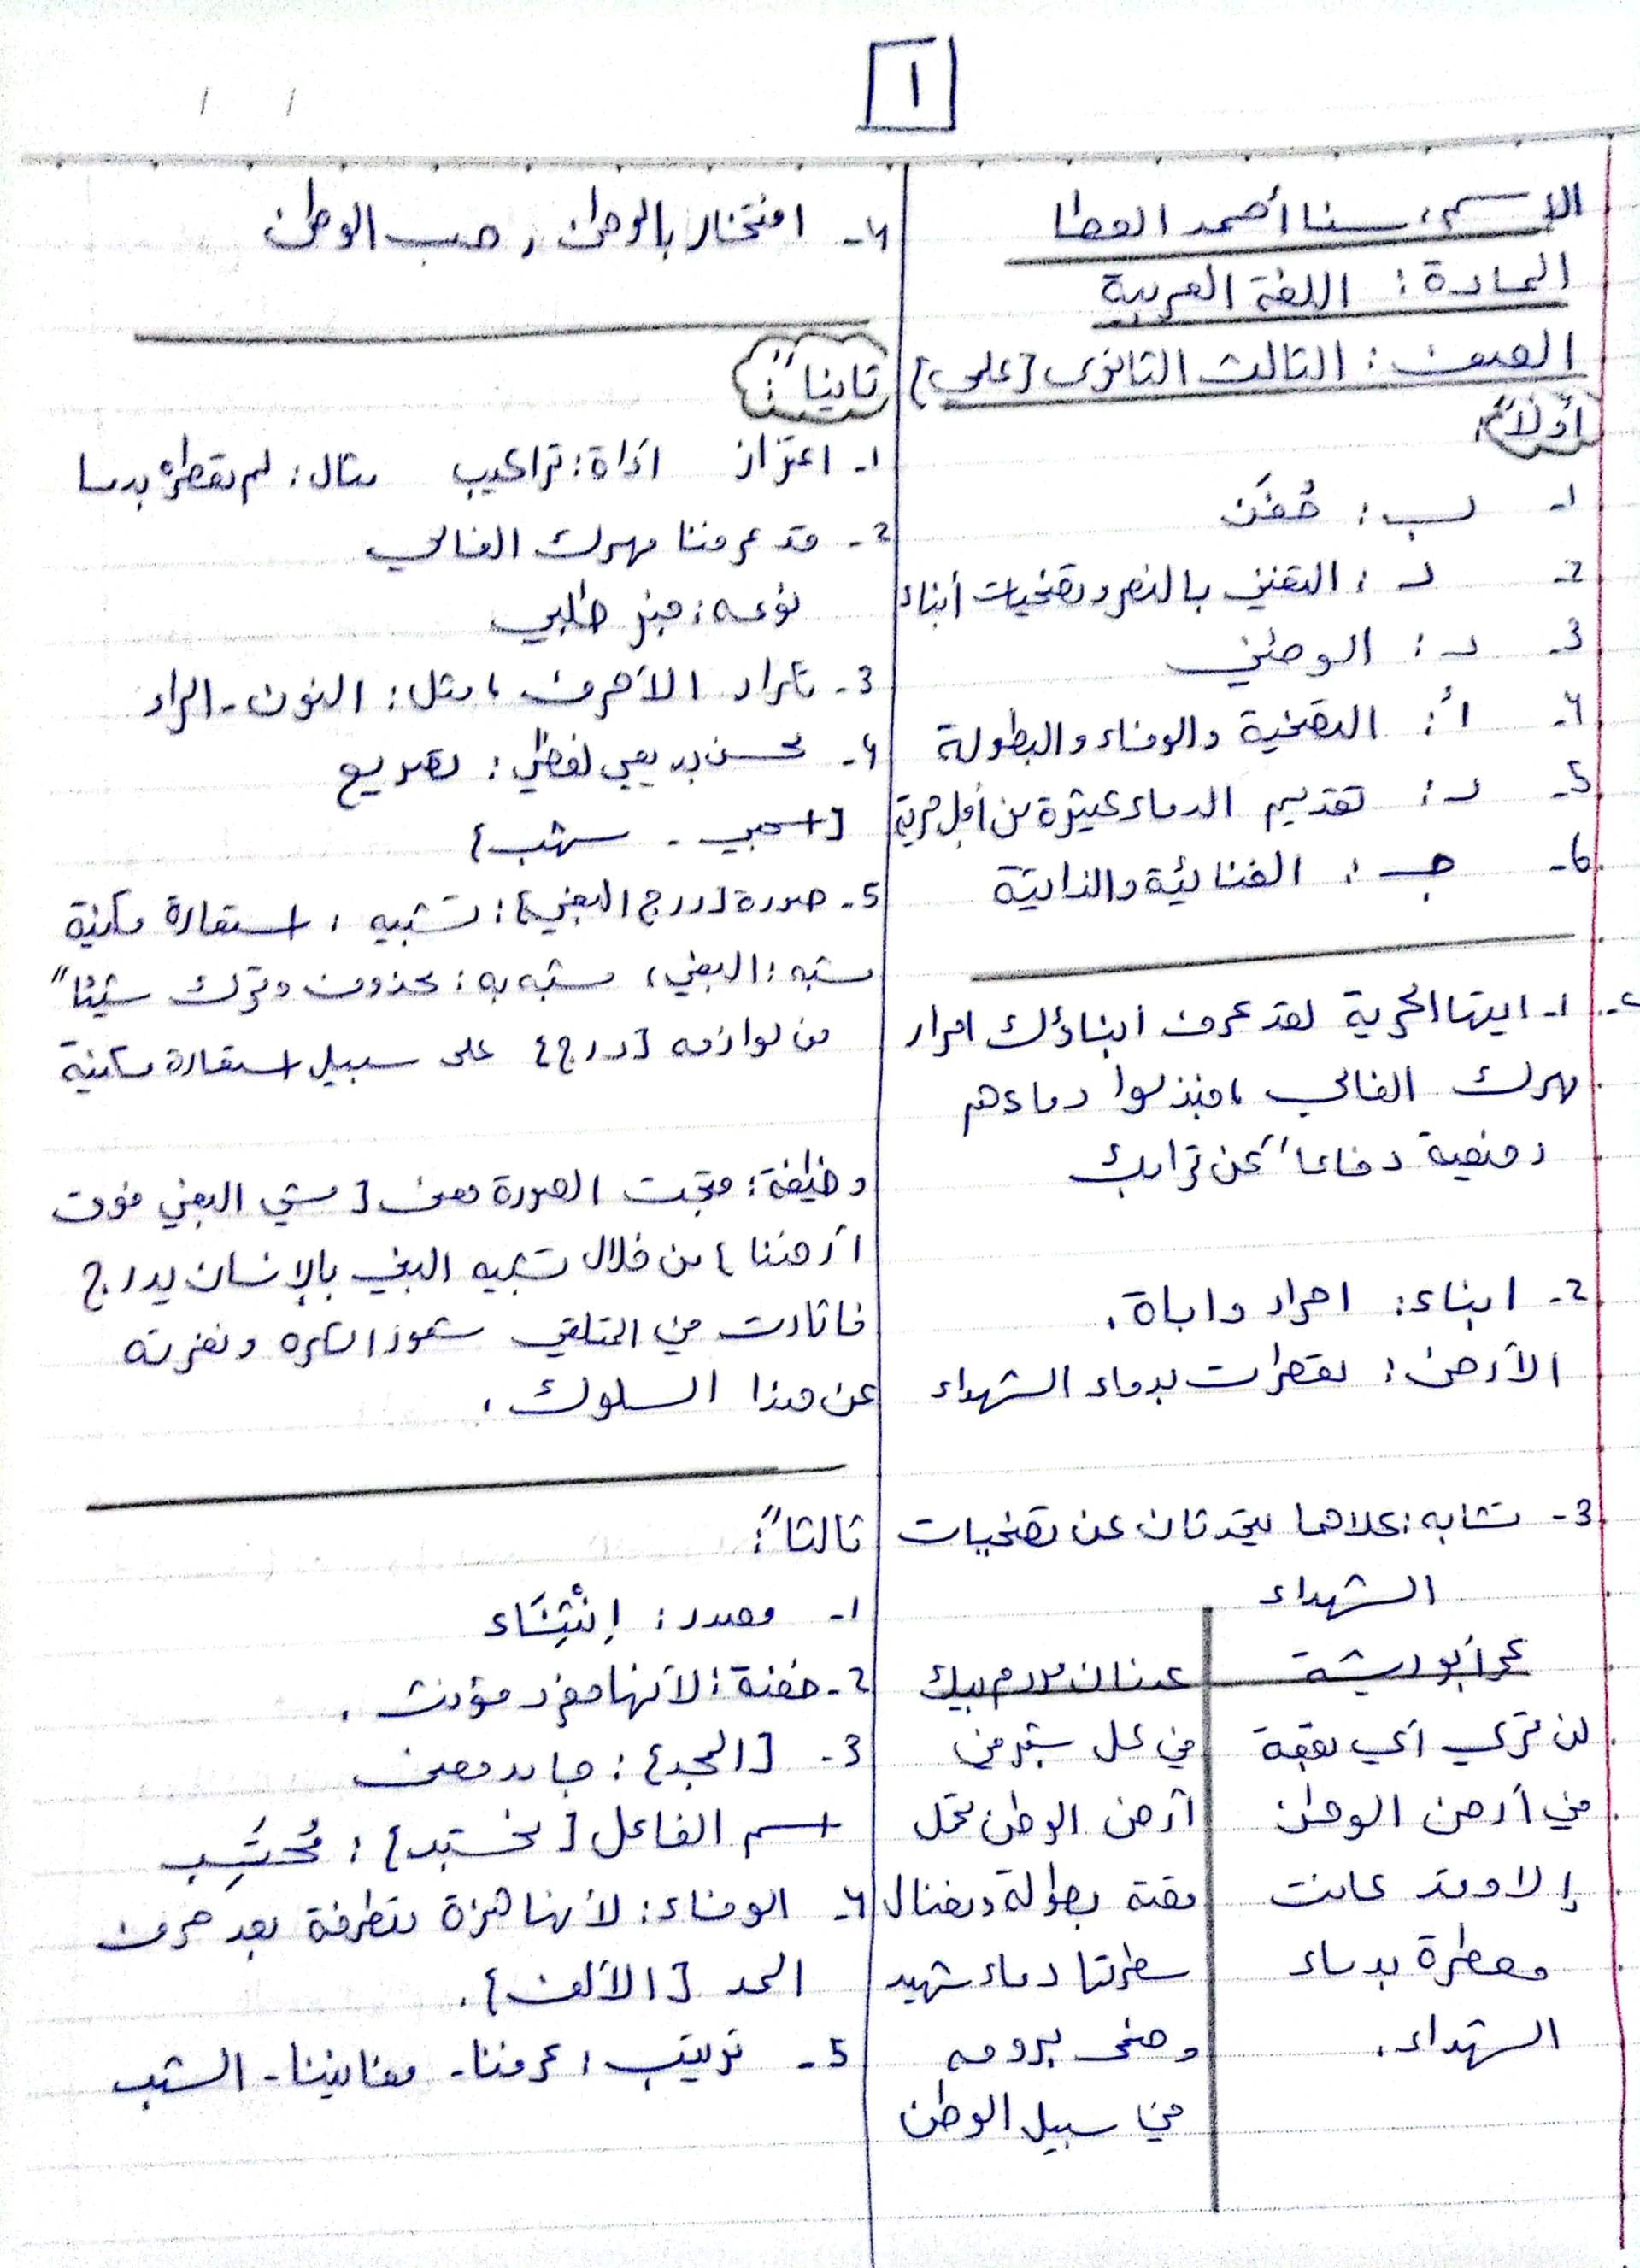 ١
الاسم: سنا أحمد العطا
المادة: اللغة العربية
الصف: الثالث الثانوي [علمي]
أولاً:
1- ب: خُفَن
2- د: التغني بالنصر وتضحيات أبناء
3- د: الوطني
4- أ: التضحية والوفاء والبطولة
5- د: تقديم الدماء كثيرة من أجل حرية
6- جـ: الغنائية والذاتية
2- 1- ايتها الحرية لقد عرف ابناؤك احرار
مهرك الغالي، فبذلوا دماءهم
رخيصة دفاعاً عن ترابك
2- ابناء: احرار واباة.
الأرض: تعطرت بدماء الشهداء
3- تشابه: كلاهما يتحدثان عن تضحيات
الشهداء
عمر أبو ريشة
لن تري أي بقعة
في أرض الوطن
إلا وقد كانت
معطرة بدماء
الشهداء.
عدنان مردم بيك
في كل شبر من
أرض الوطن تحمل
قصة بطولة ونضال
سطرتها دماء شهيد
وضحى بروحه
في سبيل الوطن
4- افتخار بالوطن، حب الوطن
ثانياً:
1- اعتزاز أداة: تراكيب مثال: لم تعطره بدما
2- قد عرفنا مهرك الغالي
نوعه: خبر طلبي
3- تكرار الأحرف، مثل: النون - الراء
4- محسن بديعي لفظي: تصريع
[اسحبي - شهب]
5- صورة [درج البغي]: تشبيه، استعارة مكنية
شبه: البغي، مشبه به: محذوف وترك شيئاً
من لوازمه [درج] على سبيل استعارة مكنية
وظيفة: قبحت الصورة معنى [مشي البغي فوق
أرضنا] من خلال تشبيه البغي بالإنسان يدرج
فاثارت في المتلقي شعور الكره ونفرته
عن هذا السلوك.
ثالثاً:
1- مصدر: إنْثِنَاء
2- خفنة: لأنها مفرد مؤنث.
3- [المجد]: جامد معنى
اسم الفاعل [نحتسبد]: مُحتَسِب
4- الوفاء: لأنها همزة متطرفة بعد حرف
المد [الألف].
5- ترتيب: عرفنا - مغانينا - الشهب